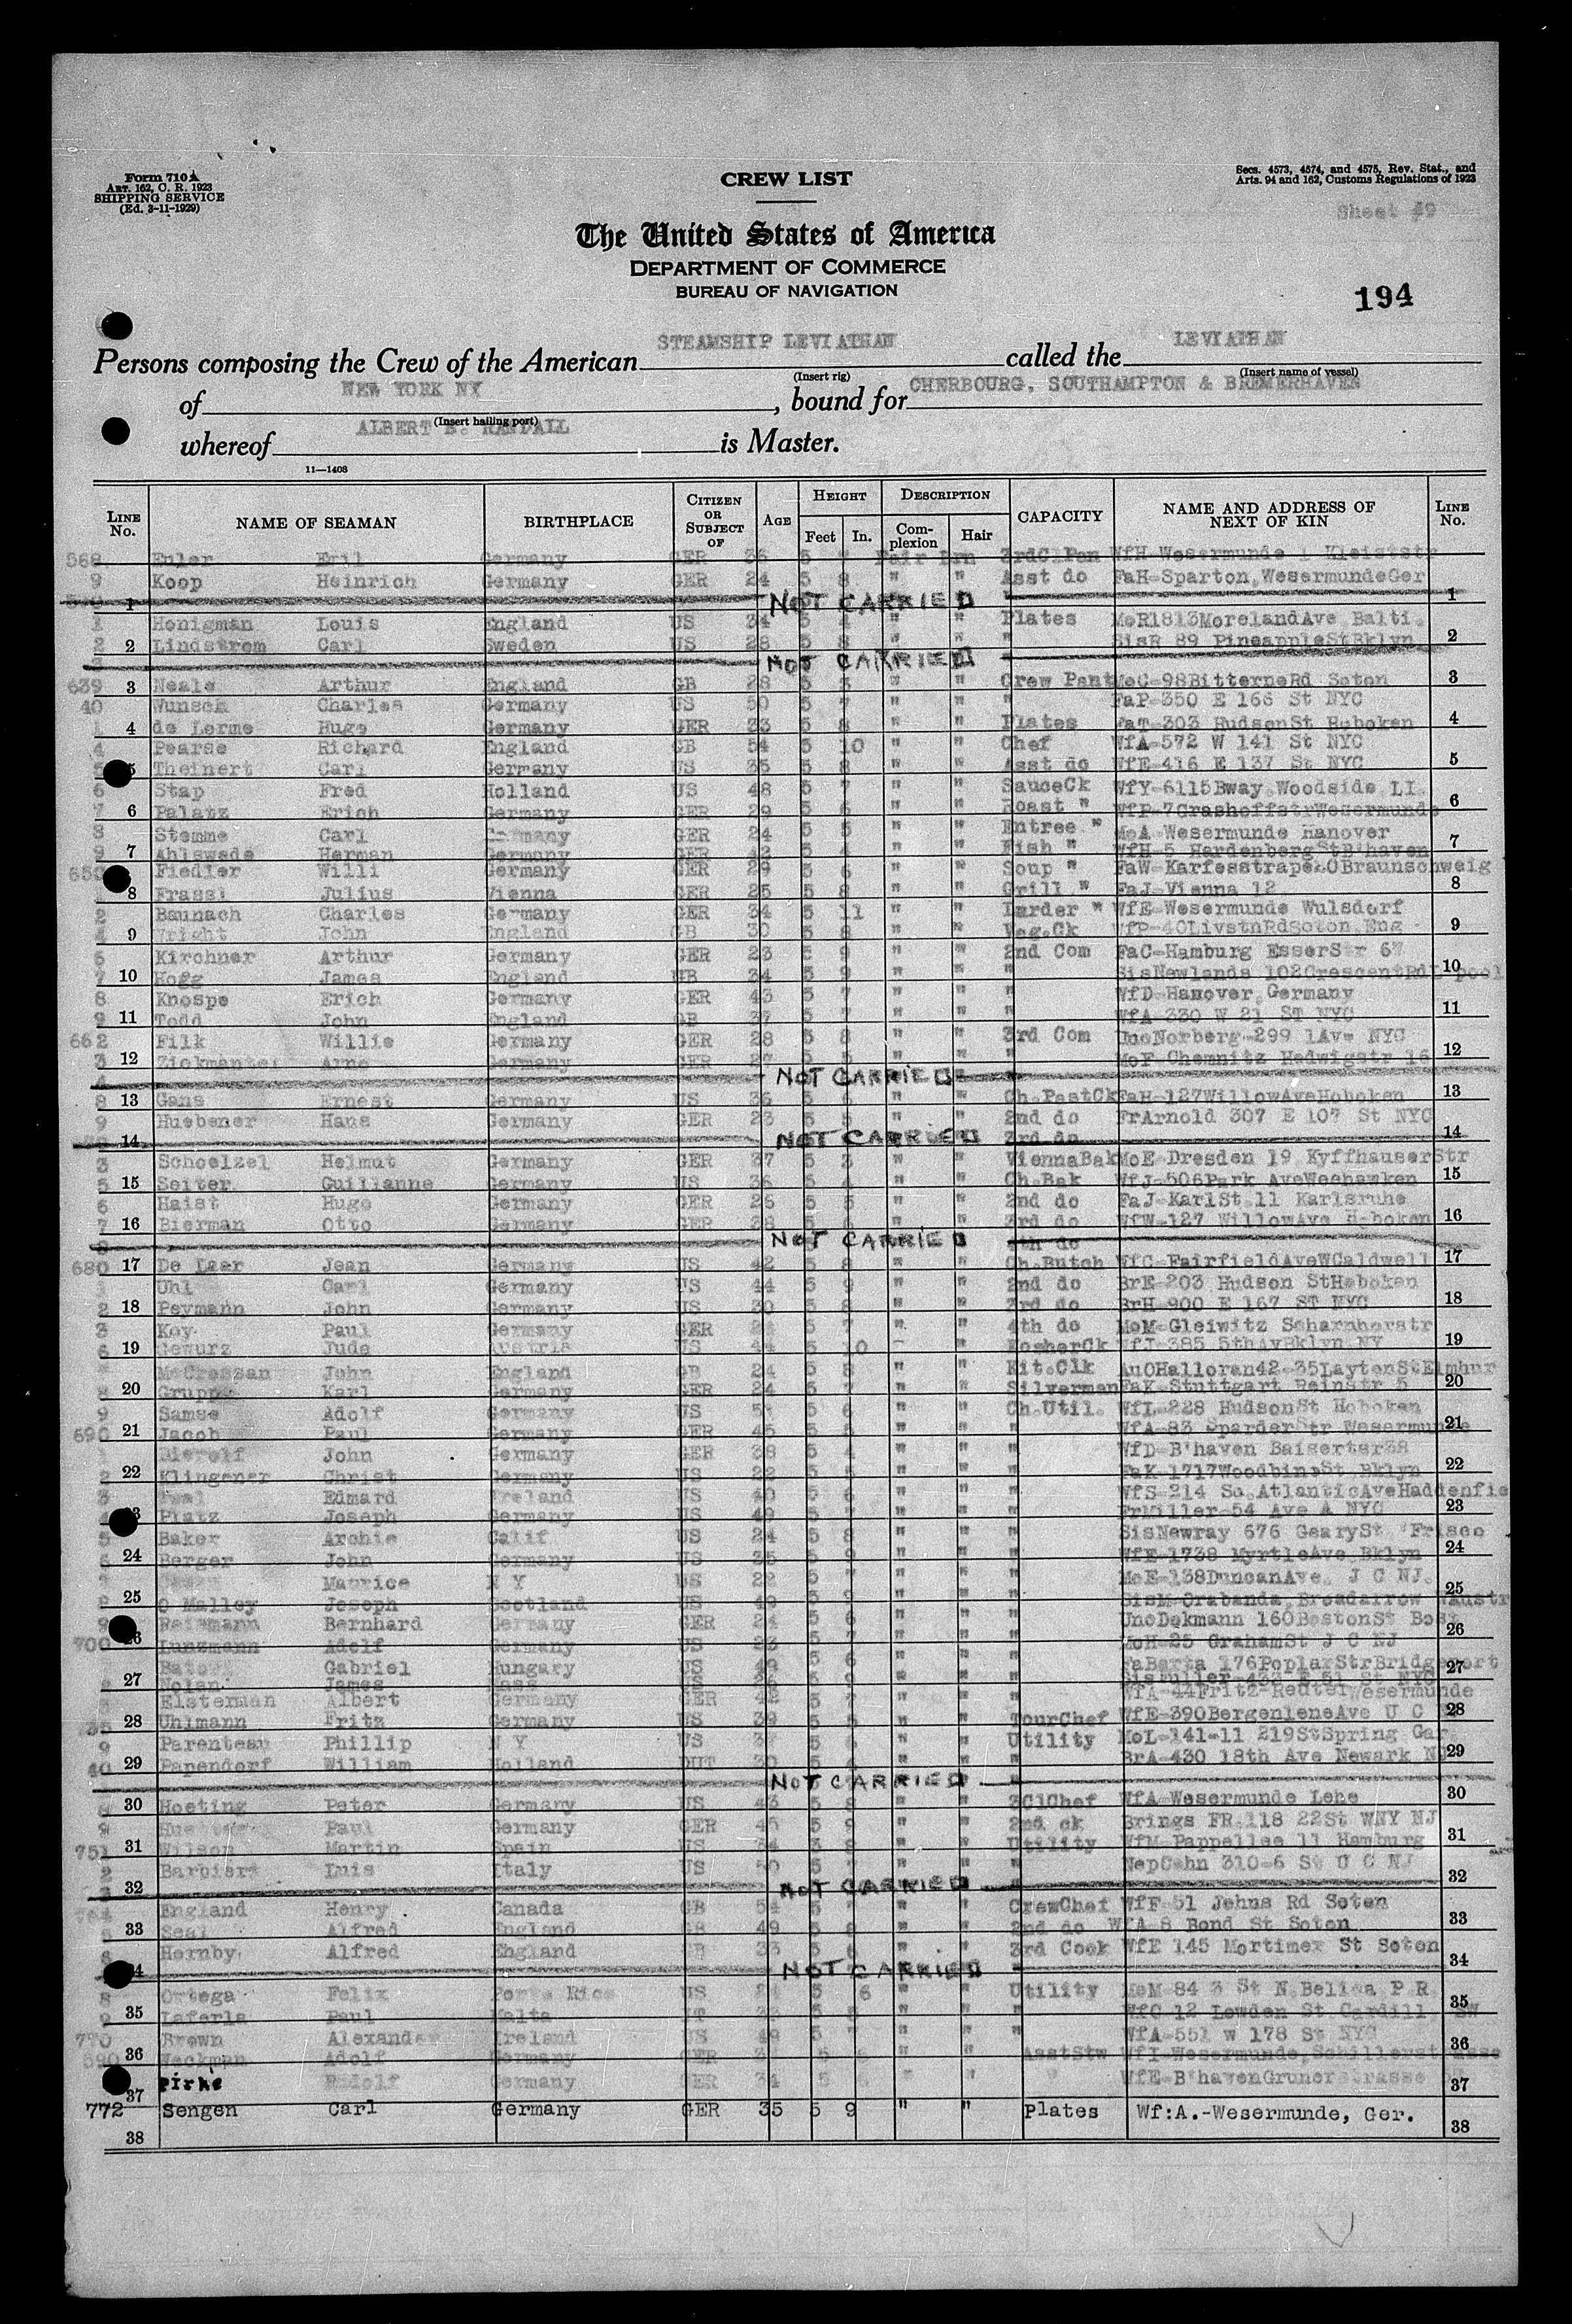 Form 710A
ART. 162, C. R. 1923
SHIPPING SERVICE
(Ed. 3-11-1929)
CREW LIST
Secs. 4573, 4574, and 4575, Rev. Stat., and
Arts. 94 and 162, Customs Regulations of 1923
Sheet #9
The United States of America
DEPARTMENT OF COMMERCE
BUREAU OF NAVIGATION
194
Persons composing the Crew of the American STEAMSHIP LEVIATHAN called the LEVIATHAN
(Insert rig) (Insert name of vessel)
of NEW YORK NY, bound for CHERBOURG, SOUTHAMPTON & BREMERHAVEN
(Insert hailing port)
whereof ALBERT B. RANDALL is Master.
11—1408
LINE No. NAME OF SEAMAN BIRTHPLACE CITIZEN OR SUBJECT OF AGE HEIGHT Feet In. DESCRIPTION Complexion Hair CAPACITY NAME AND ADDRESS OF NEXT OF KIN LINE No.
568 Germany GER 36 5 Fair Brn 3rdC Pan WfH-Wesermunde
9 Koop Heinrich Germany GER 24 5 8 " " Asst do FaH-Sparton,WesermundeGer
1 NOT CARRIED 1
1 Honigman Louis England US 34 5 4 " " Plates MoR1813MorelandAve Balti.
2 2 Lindstrom Carl Sweden US 28 5 8 " " " SisR 89 PineappleStBklyn 2
NOT CARRIED
639 3 Neale Arthur England GB 28 5 3 " " Crew Pant MoC-98BitterneRd Soton 3
40 Wunsch Charles Germany US 50 5 7 " " " FaP-350 E 166 St NYC
4 de Lorme Hugo Germany GER 23 5 8 " " Plates FaT-303 HudsonSt Hoboken 4
4 Pearse Richard England GB 54 5 10 " " Chef WfA-572 W 141 St NYC
5 Theinert Carl Germany US 35 5 8 " " Asst do WfE-416 E 137 St NYC 5
6 Stap Fred Holland US 48 5 7 " " SauceCk WfY-6115Bway Woodside LI.
7 6 Palatz Erich Germany GER 29 5 6 " " Roast " 6
8 Stemme Carl Germany GER 24 5 5 " " Entree " MoA-Wesermunde Hanover
9 7 Ahlswede Herman Germany GER 42 5 4 " " Fish " WfH-5 HardenbergStB'haven 7
650 Fiedler Willi Germany GER 29 5 6 " " Soup "
8 Frassl Julius Vienna GER 25 5 8 " " Grill " FaJ-Vienna 12 8
2 Baunach Charles Germany GER 34 5 11 " " Larder " WfE-Wesermunde Wulsdorf
4 9 Wright John England GB 30 5 8 " " Veg.Ck WfP-40LivstnRdSoton Eng 9
6 Kirchner Arthur Germany GER 23 5 9 " " 2nd Com FaC-Hamburg EsserStr 67
7 10 Hogg James England GB 34 5 9 " " " SisNewlands 102CrescentRd 10
8 Knospe Erich Germany GER 43 5 7 " " " WfD-Hanover Germany
9 11 Todd John England GB 37 5 7 " " " WfA-330 W 21 ST NYC 11
662 Filk Willie Germany GER 28 5 8 " " 3rd Com UncNorberg-299 1Ave NYC
3 12 Arno Germany GER 27 5 5 " " " MoF-Chemnitz Hedwigstr 16 12
NOT CARRIED
8 13 Gans Ernest Germany US 36 5 6 " " Ch.PastCk FaH-127WillowAveHoboken 13
9 Huebener Hans Germany GER 23 5 5 " " 2nd do FrArnold 307 E 107 St NYC
14 NOT CARRIED 3rd do 14
3 Schoelzel Helmut Germany GER 37 5 3 " " ViennaBak MoE-Dresden 19 KyffhauserStr
5 15 Seiter Guilianne Germany US 36 5 4 " " Ch.Bak WfJ-506Park AveWeehawken 15
6 Haist Hugo Germany GER 26 5 5 " " 2nd do FaJ-KarlSt.11 Karlsruhe
7 16 Bierman Otto Germany GER 28 5 " " 3rd do WfW-127 WillowAve Hoboken 16
NOT CARRIED 4th do
680 17 De Laar Jean Germany US 42 5 8 " " Ch.Butch WfC-FairfieldAveWCaldwell 17
Uhl Carl Germany US 44 5 9 " " 2nd do BrE-203 Hudson StHoboken
2 18 Peymann John Germany US 30 5 8 " " 3rd do BrH-900 E 167 ST NYC 18
3 Koy Paul Germany GER 5 7 " " 4th do MoM-Gleiwitz Scharnhorstr
6 19 Gewurz Jude Austria US 44 5 10 " KosherCk WfJ-385 5thAvBklyn NY 19
McCrossan John England GB 24 5 8 " " Kit.Clk AuOHalloran42-35LaytonStElmhur
8 20 Gruppe Karl Germany GER 24 5 7 " " Silverman FaK-Stuttgart Reinstr 5 20
9 Samse Adolf Germany US 5 6 " " Ch.Util. WfL-228 HudsonSt Hoboken
690 21 Jacob Paul Germany GER 45 5 5 " " " 21
John Germany GER 38 5 4 " " "
2 22 Klingener Christ Germany US 22 5 5 " " " FaK-1717WoodbineSt Bklyn 22
3 Edmard Ireland US 40 5 6 " " " WfS-214 So.AtlanticAveHaddenfie
4 Platz Joseph Germany US 49 5 7 " " " FrMiller-54 Ave A NYC 23
5 Baker Archie Calif US 24 5 8 " " " SisNewray 676 GearySt 'Frisco
6 24 Berger John Germany US 35 5 9 " " " WfE-1738 MyrtleAve Bklyn 24
Maurice N Y US 22 5 7 " " " MoE-138DuncanAve. J C NJ.
8 25 O Malley Joseph Scotland US 49 5 9 " " " 25
9 Bernhard Germany GER 24 5 6 " " UncDekmann 160BostonSt Bost
700 26 Lunzmann Adolf Germany US 23 5 7 " " MoH-25 GrahamSt J C NJ 26
Gabriel Hungary US 49 5 6 " " " FaBarta 176PoplarStrBridgeport
27 Nolan James Mass US 5 9 " " " 27
3 Elsterman Albert Germany GER 42 5 7 " " "
28 Uhlmann Fritz Germany US 39 5 5 " " TourChef WfE-390BergenleneAve U C 28
9 Parenteau Phillip N Y US 5 6 " " Utility MoL-141-11 219StSpring Ga
40 29 Papendorf William Holland DUT 30 5 4 " " " BrA-430 18th Ave Newark NJ 29
NOT CARRIED
30 Hoeting Peter Germany US 43 5 8 " " 3ClChef WfA-Wesermunde Lehe 30
9 Paul Germany GER 45 5 9 " " 2nd ck Brings FR.118 22St WNY NJ
751 31 Wilson Martin Spain US 34 5 8 " " Utility WfM-Pappellee 11 Hamburg 31
2 Barbieri Luis Italy US 5 7 " " " 310-6 St U C NJ 32
32 NOT CARRIED
England Henry Canada GB 54 5 7 " " CrewChef WfF-51 Johns Rd Soton
33 Seal Alfred England GB 49 5 8 " " 2nd do WfA-8 Bond St Soton 33
Hornby Alfred England GB 33 5 6 " " 3rd Cook WfE 145 Mortimer St Soton 34
NOT CARRIED
8 Ortega Felix Porto Rico US 5 6 " " Utility MoM-84 3 St N.Beliza P R
9 35 Laferla Paul Malta 5 5 " " WfC-12 Lowden St Cardill SW 35
770 Brown Alexander Ireland US 49 5 7 " " " WfA-551 W 178 St NYC
36 Weckman Adolf Germany GER 5 " " AsstStw WfI-Wesermunde,Schillerstrasse 36
37 Rudolf Germany GER 34 5 " " " WfE-B'havenGrunerstrasse 37
772 Sengen Carl Germany GER 35 5 9 " " Plates Wf:A.-Wesermunde, Ger.
38 38